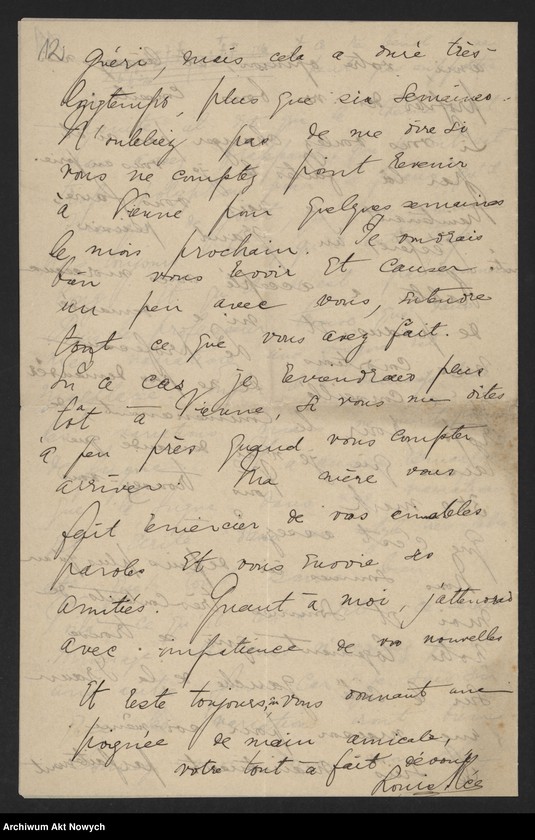 12
guéri, mais cela a duré très-
longtemps, plus que six semaines.
N'oubliez pas de me dire si
vous ne comptez point revenir
à Vienne pour quelques semaines
le mois prochain. Je voudrais
bien vous revoir et causer
un peu avec vous, entendre
tout ce que vous avez fait.
En ce cas je reviendrais plus
tôt à Vienne, si vous me dites
à peu près quand vous comptez
arriver. Ma mère vous
fait remercier de vos aimables
paroles et vous envoie ses
amitiés. Quant à moi, j'attends
avec impatience de vos nouvelles
et reste toujours, en vous donnant une
poignée de main amicale,
votre tout à fait dévoué
Louis Rée
Archiwum Akt Nowych